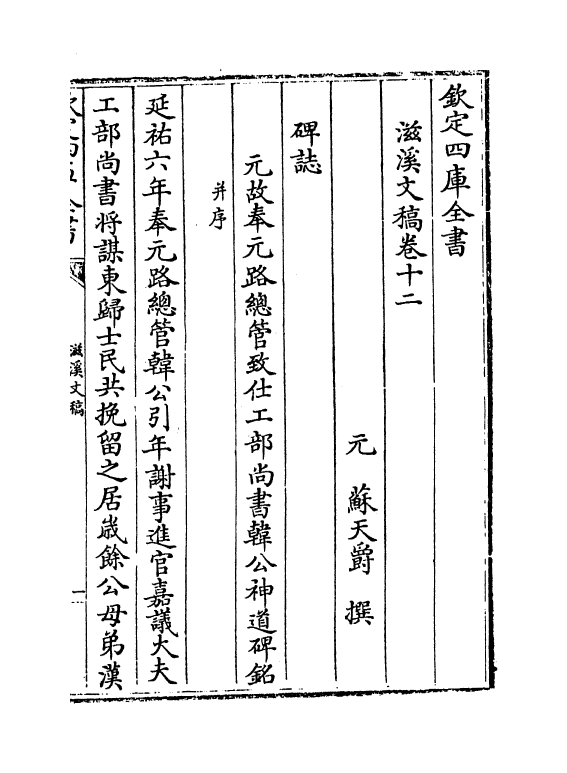 欽定四庫全書
滋溪文稿卷十二
元 蘇天爵 撰
碑誌
元故奉元路總管致仕工部尚書韓公神道碑銘
并序
延祐六年奉元路總管韓公引年謝事進官嘉議大夫
工部尚書將謀東歸士民共挽留之居歲餘公母弟漢
滋溪文稿
一